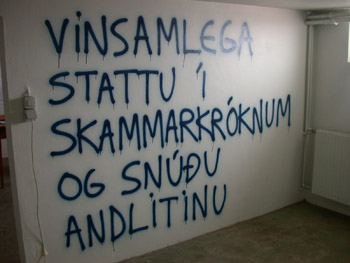 VINSAMLEGA
STATTU Í
SKAMMARKRÓKNUM
OG SNÚÐU
ANDLITINU